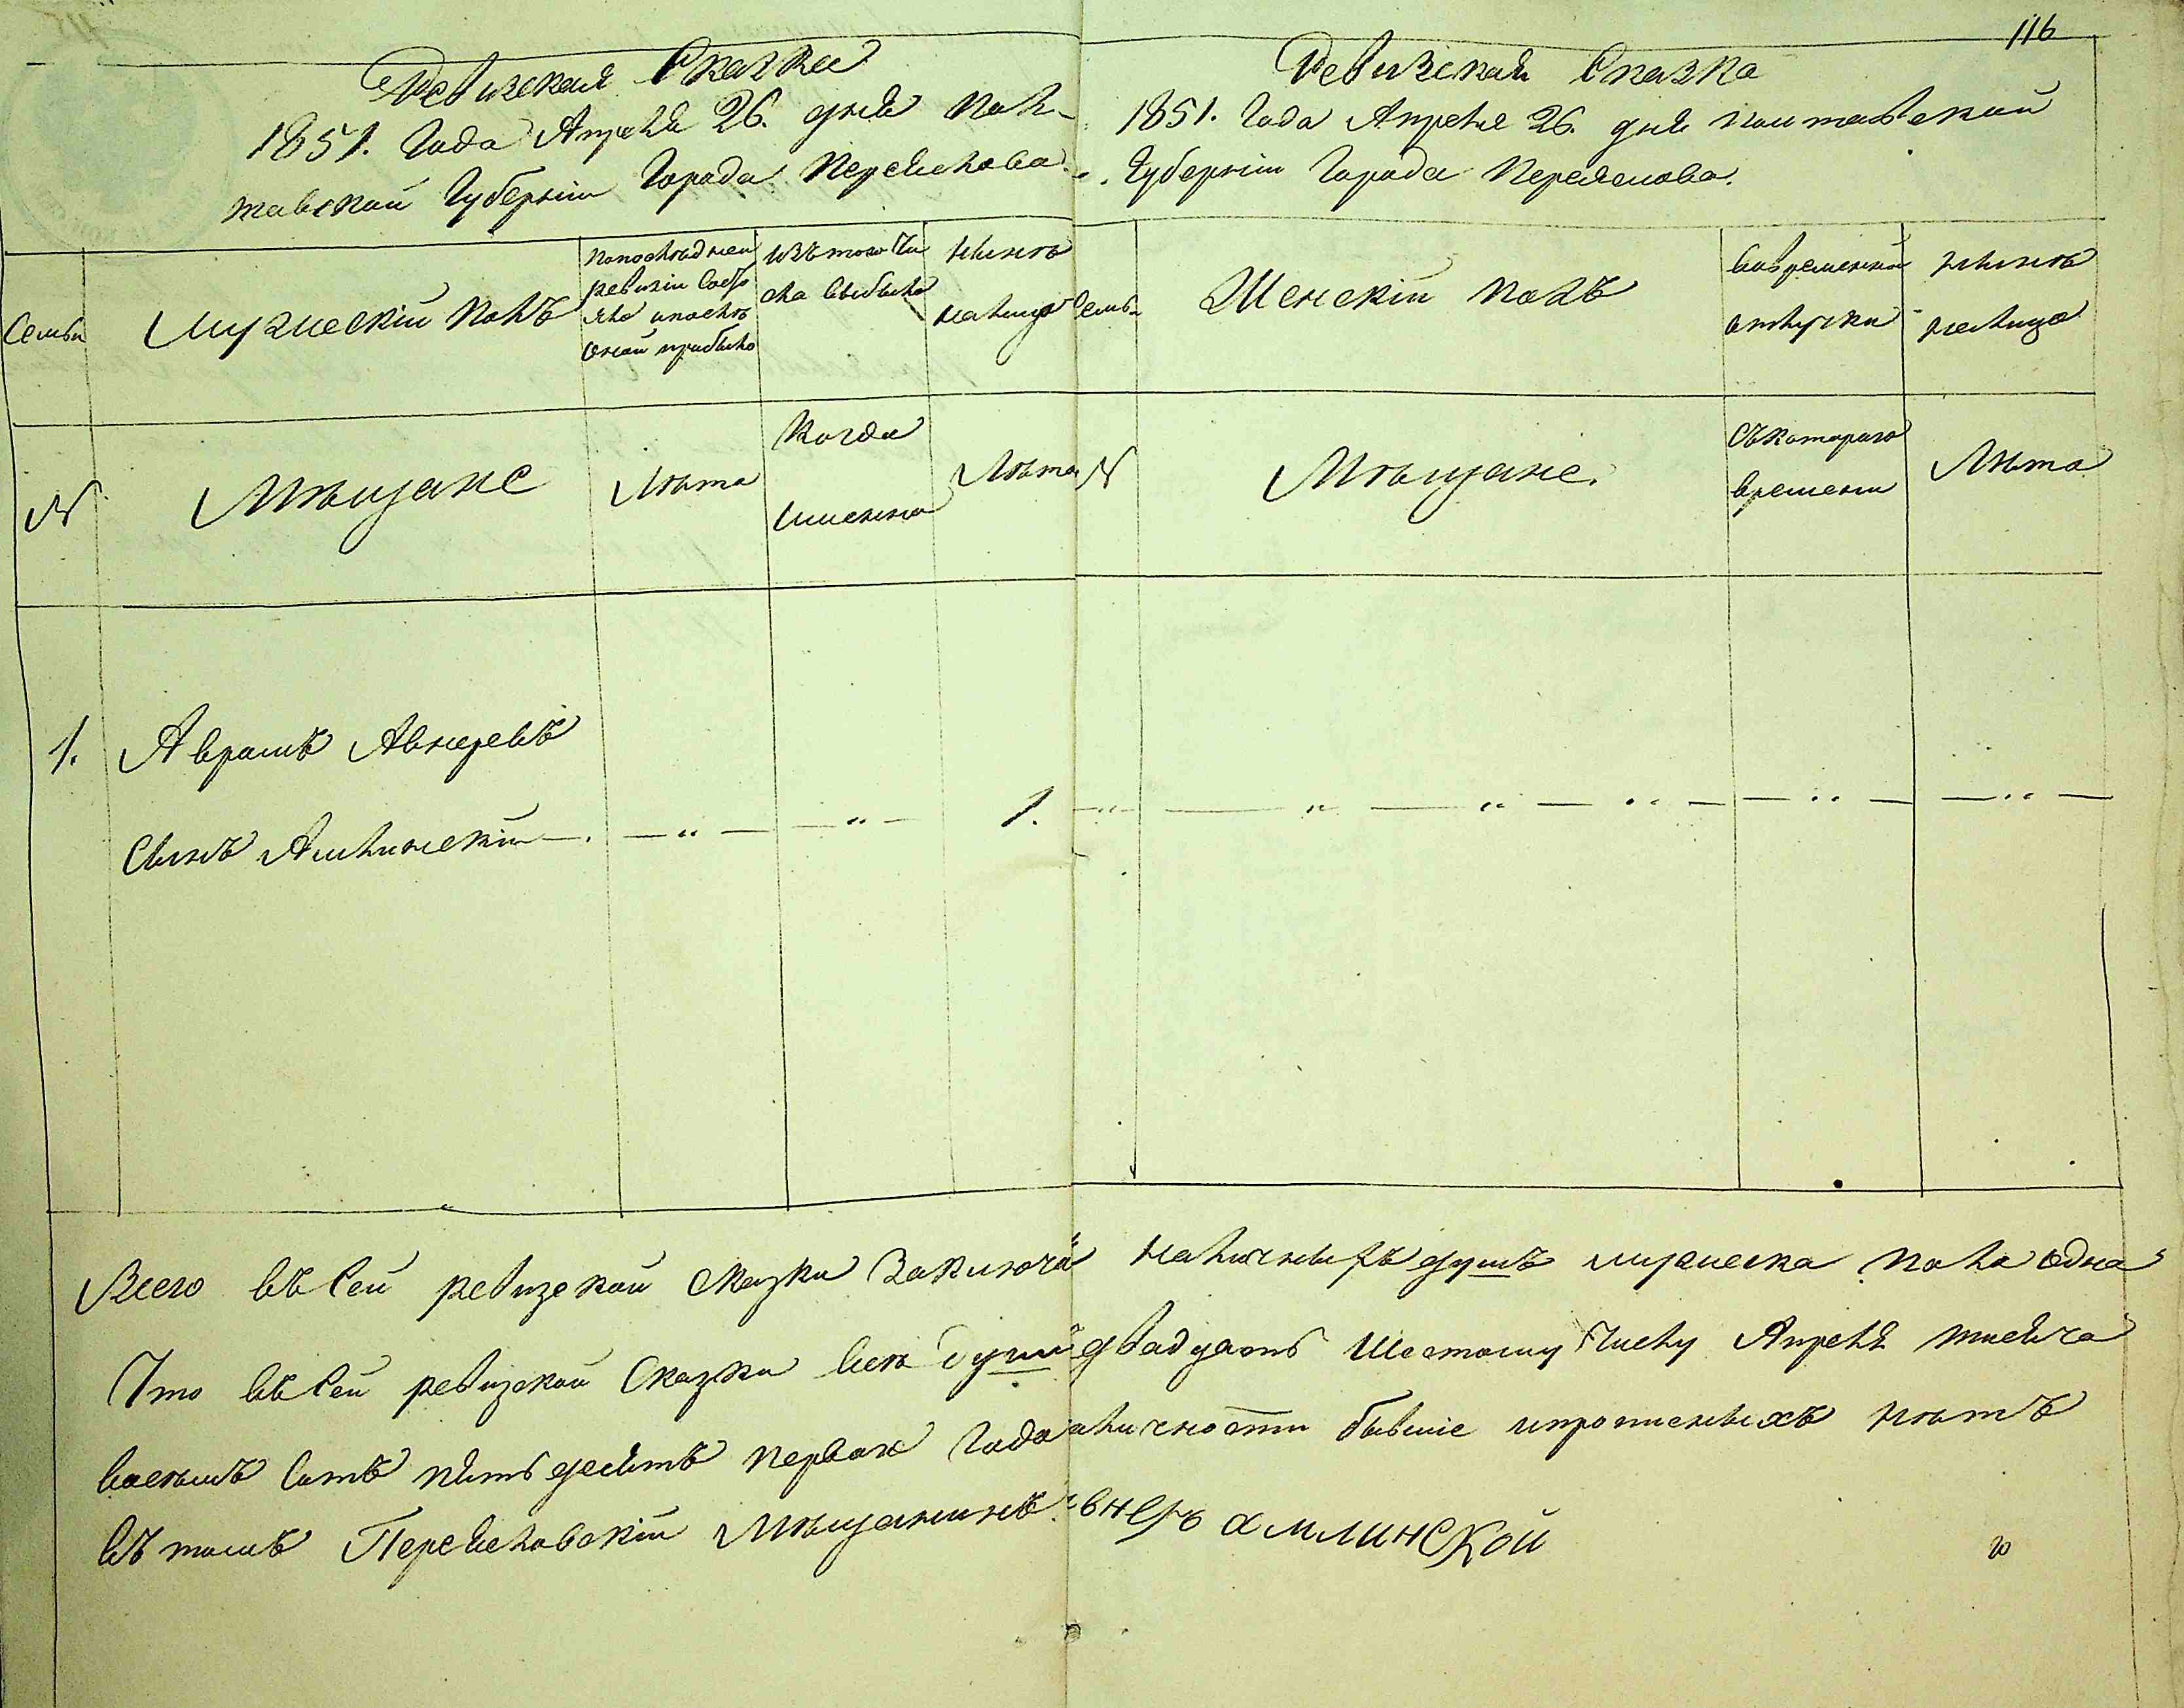 116
Ревизская Сказка
1851. Года Апреля 26. дня Пол-
тавской Губернии Города Переяслова
Ревизская Сказка
1851. Года Апреля 26. дня Полтавской
Губернии Города Переяслова.
Семьи
Мужеский полъ
По последней
ревизіи состо
яло и после
оной прибыло
Изъ того чи
сла выбыло
Ныне
налицо
Семьи
Женскій полъ
Во временной
отлучки
Ныне
налицо
N
Мѣщане
Лѣта
Когда
именно
Лѣта
N
Мѣщане.
Съ котораго
времени
Лѣта
1. Аврамъ Авнеревъ
Сынъ Амлинскій — " — — " — 1. — " — " — " — " — " — " —
Всего въ сей ревизской сказки заключа
наличныхъ душъ мужеска пола одна
Что въ сей ревизской Сказки все души
двадцать Шестому Числу Апреля месяца
восемъ сотъ пятьдесятъ перваго Года
аличности бывшіе и прописныхъ нѣтъ
въ томъ Переясловскій Мѣщанинъ
внеръ амлинской